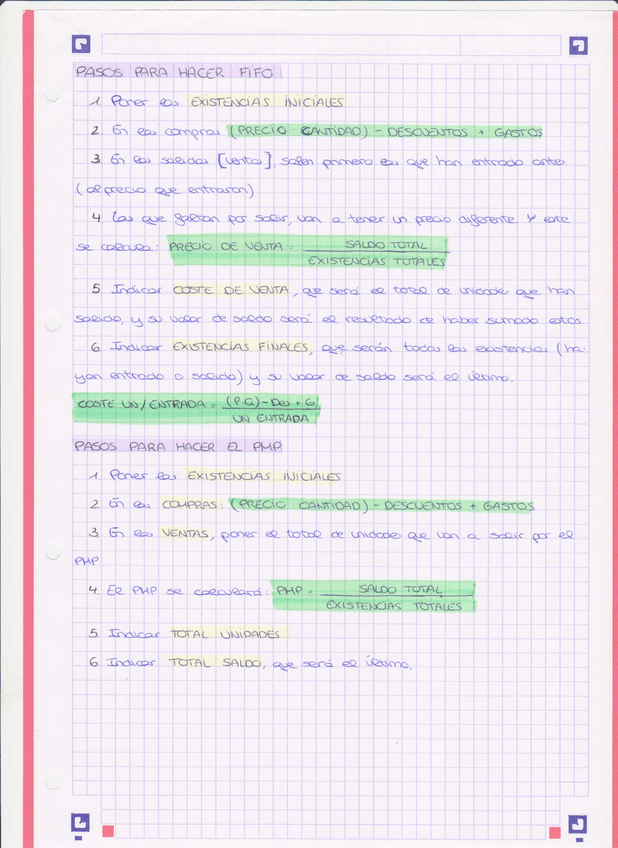 PASOS PARA HACER FIFO
1. Poner las EXISTENCIAS INICIALES
2. En las compras (PRECIO CANTIDAD) - DESCUENTOS + GASTOS
3. En las salidas [ventas], salen primero las que han entrado antes
(al precio que entraron)
4 Las que gastan por salir, van a tener un precio diferente y este
se calcula: PRECIO DE VENTA = SALDO TOTAL
EXISTENCIAS TOTALES
5. Indicar COSTE DE VENTA, que será el total de unidades que han
salido, y su valor de saldo será el resultado de haber sumado estas.
6. Indicar EXISTENCIAS FINALES, que serán todas las existencias (ha-
yan entrado o salido) y su valor de saldo será el último.
COSTE UN/ENTRADA = (P.Q) - Des + G.
UN ENTRADA
PASOS PARA HACER EL PMP
1. Poner las EXISTENCIAS INICIALES
2. En las COMPRAS: (PRECIO CANTIDAD) - DESCUENTOS + GASTOS
3. En las VENTAS, poner el total de unidades que van a salir por el
PMP
4. El PMP se calculará: PMP = SALDO TOTAL
EXISTENCIAS TOTALES
5. Indicar TOTAL UNIDADES
6. Indicar TOTAL SALDO, que será el último.